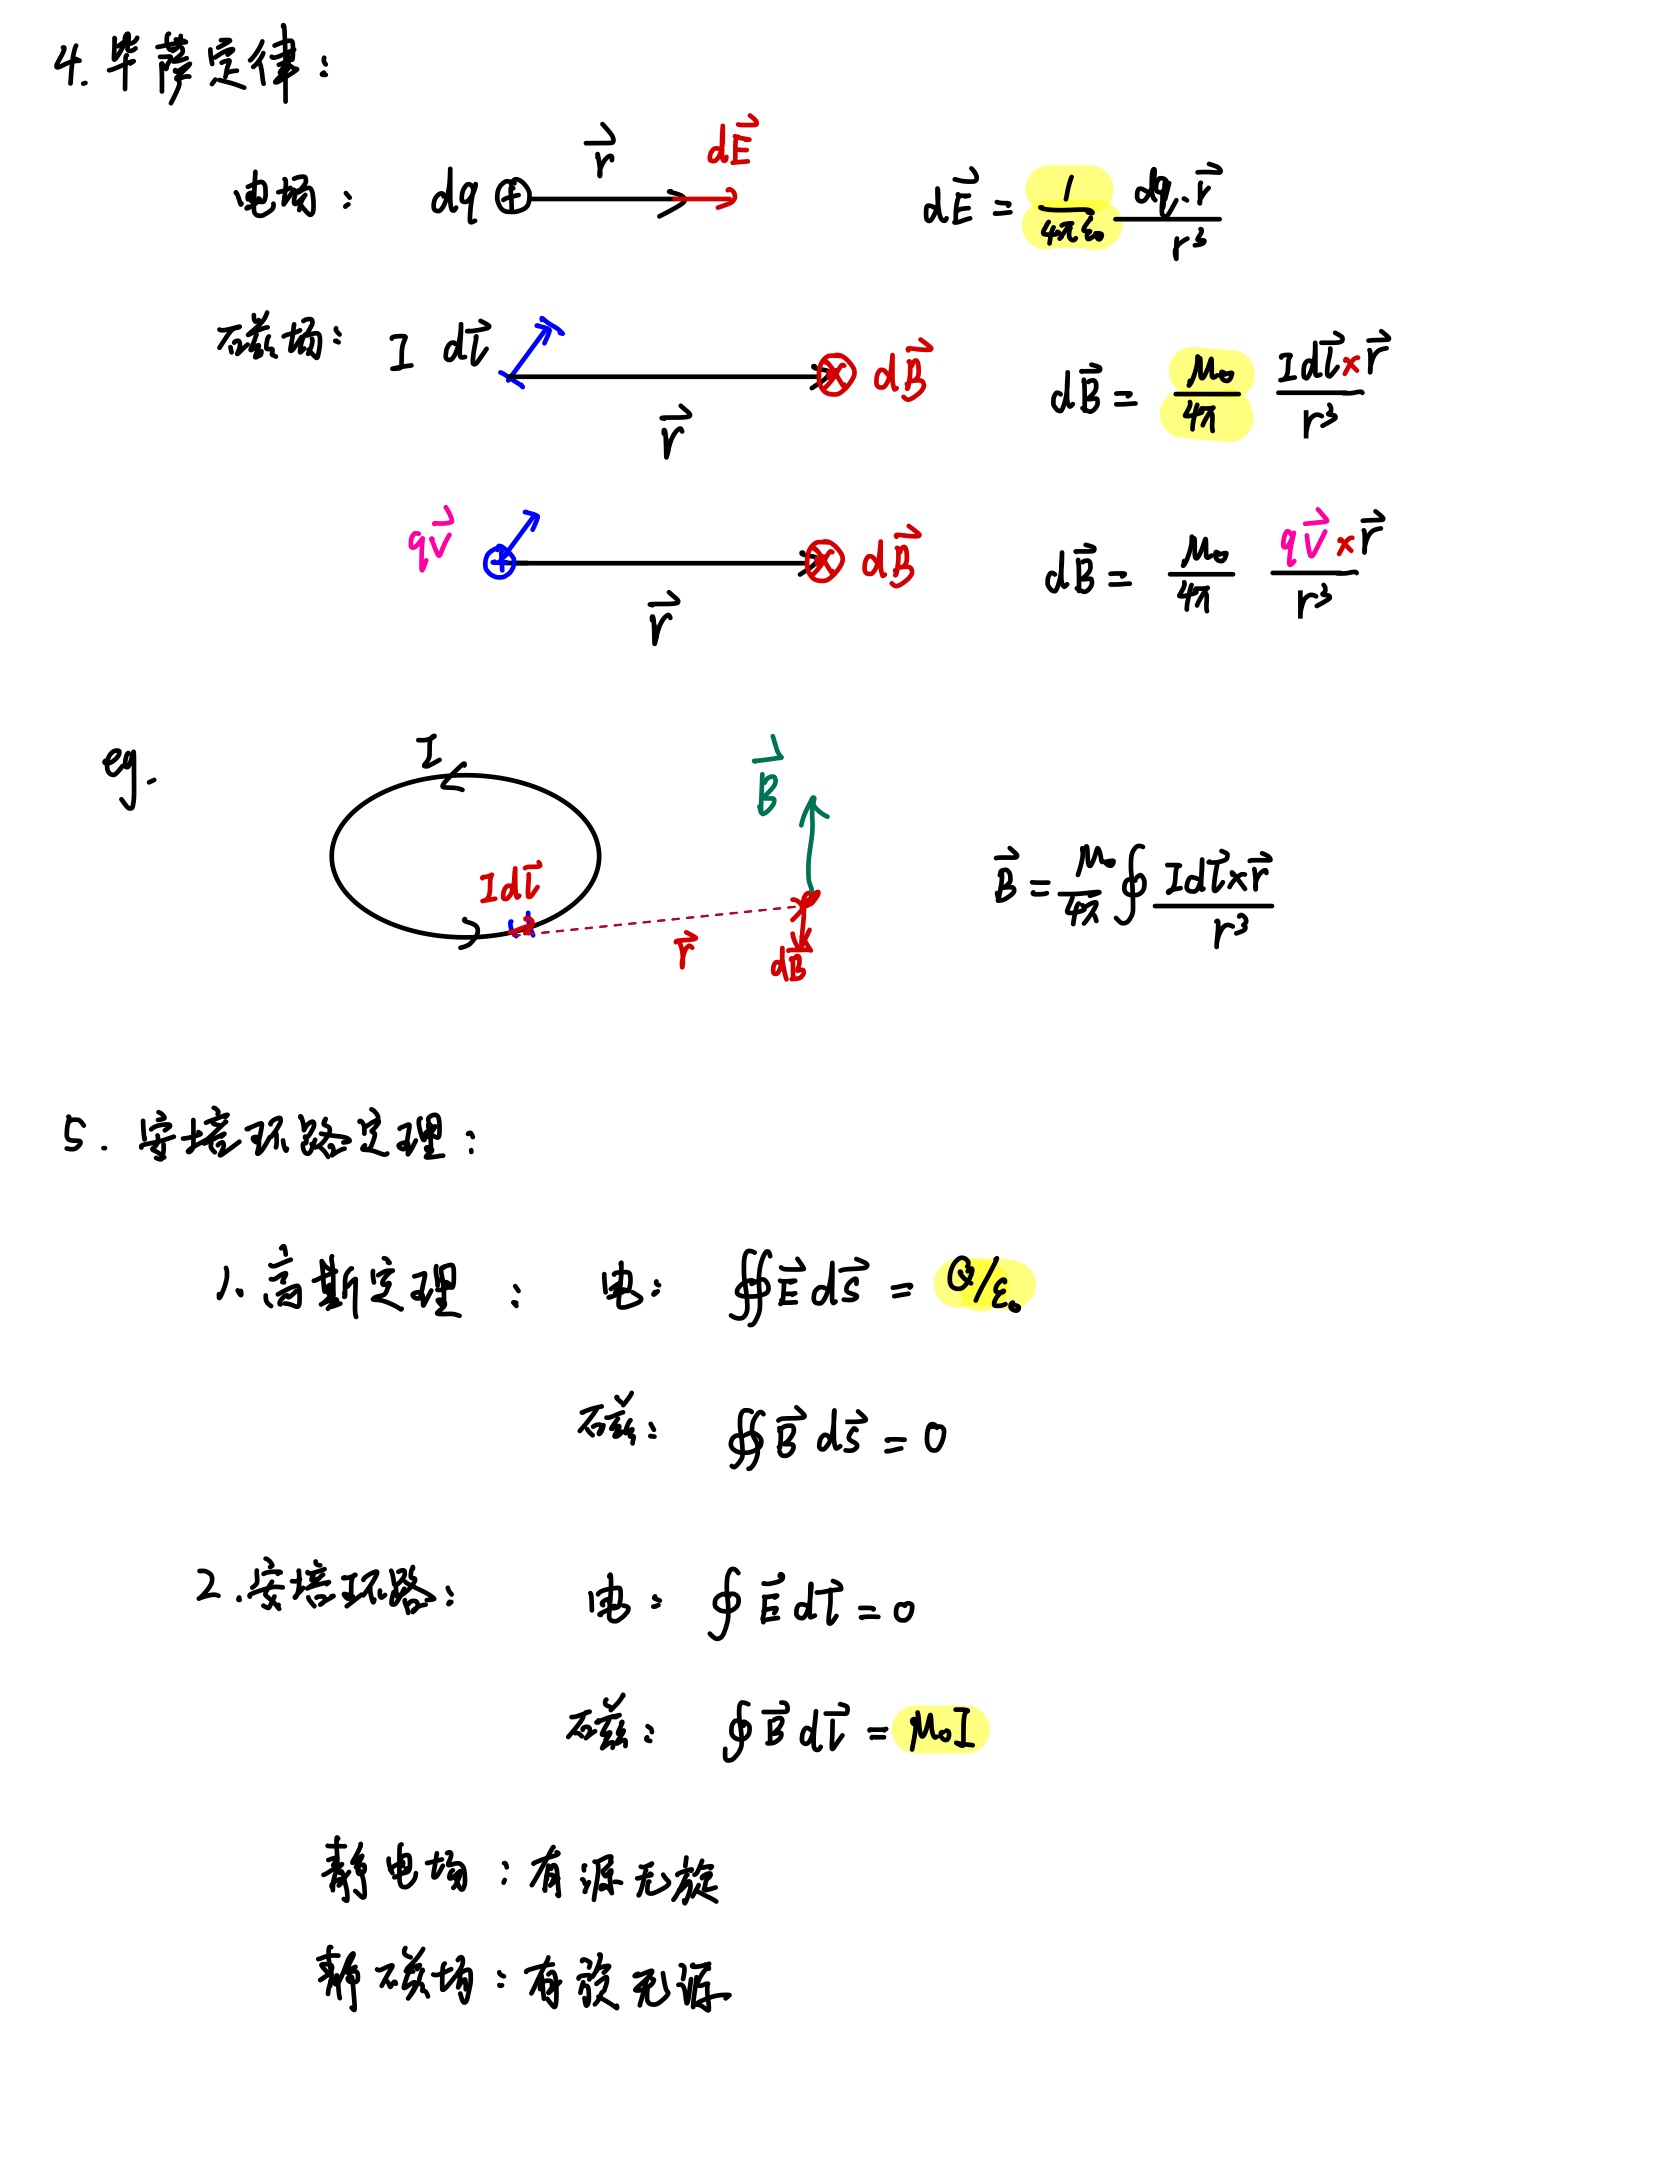 4. 毕萨定律：
电场： dq ⊕ r⃗ dE⃗ dE⃗ = 1/4πε₀ dq·r⃗/r³
磁场： I dl⃗ r⃗ dB⃗ dB⃗ = μ₀/4π Idl⃗×r⃗/r³
qv⃗ r⃗ dB⃗ dB⃗ = μ₀/4π qv⃗×r⃗/r³
eg. I Idl⃗ r⃗ B⃗ dB⃗ B⃗ = μ₀/4π ∮ Idl⃗×r⃗/r³
5. 安培环路定理：
1. 高斯定理： 电： ∯ E⃗ ds⃗ = Q/ε₀
磁： ∯ B⃗ ds⃗ = 0
2. 安培环路： 电： ∮ E⃗ dl⃗ = 0
磁： ∮ B⃗ dl⃗ = μ₀I
静电场：有源无旋
静磁场：有旋无源